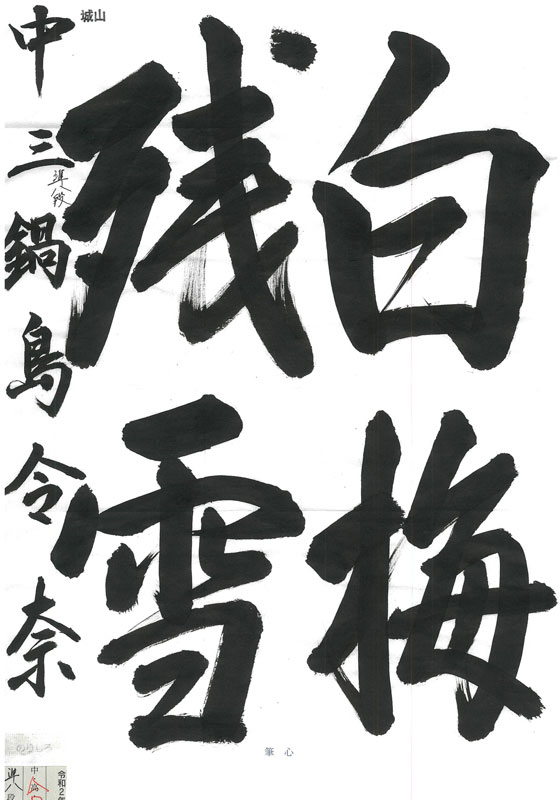 白梅
残雪
中三 準八段 鍋島令奈
城山
心筆
令和2年
中
準八段